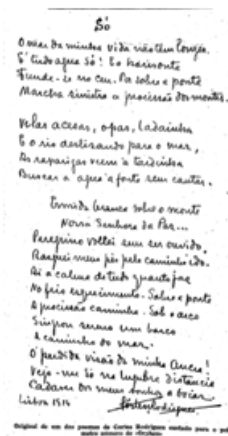 Só
O mar da minha vida não tem longes.
É tudo agua só! E o horizonte
Funde-se no ceu. Na sobre a ponte
Marcha sinistra a procissão dos monges.
Velas acesas, opas, ladainha
E o rio deslizando para o mar,
As raparigas veem à tardinha
Buscar a agua à fonte sem cantar.
Ermida branca sobre o monte
Nossa Senhora da Paz...
Peregrino voltei sem ser ouvido,
Rasguei meus pés pelo caminho ido.
Ai a calma de tudo quanto jaz
No frio esquecimento. Sobre a ponte
A procissão caminha. Sob o arco
Singrou um barco
A caminho do mar.
O' perdida visão da minha Ancia!
Vejo-me só na lugubre distancia
Cadaver dos meus sonhos a boiar.
Lisboa 1914
Original de um dos poemas de Cortes Rodrigues enviado para o
numero de «Orpheu».